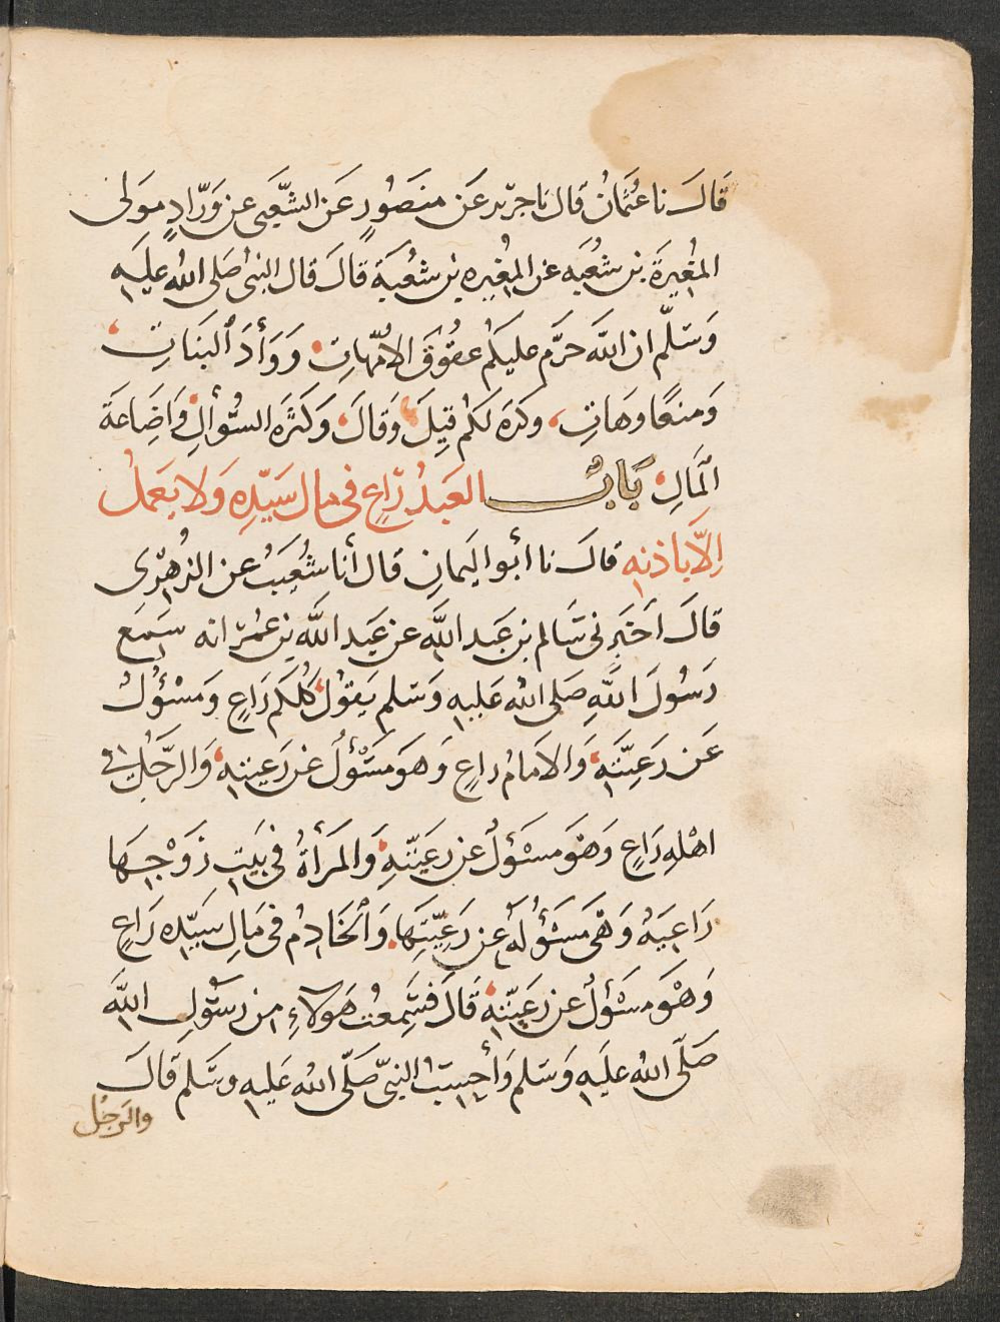 قَالَ نا عُثمَانُ قال نا جرير عَن منصُورٍ عَن الشَّعبى عن وَرَّادٍ مولى
المغيرةَ بن شعُبَه عن المغُيره بن شعُبَةَ قالَ قال النبىُ صَلى الله عليَه
وَسَلَّم ان اللهَ حرَّم عليكُم عقُوقَ الأمّهاتِ وَوَأدَ البنَاتِ
وَمنعًا وهَاتِ وكرهَ لكمُ قِيلَ وَقالَ وكَثرَه السُّؤالِ وَاضَاعَةَ
المَالِ بَابُ العَبدُ رَاعٍ فى مال سَيّدِه وَلا يَعمَلُ
اِلَّا باذنه قالَ نا أبو اليَمانِ قال أنا شعُيَبُ عن الزُهرّى
قالَ أخبَرنى سَالم بن عَبد الله عن عَبد الله بن عُمرَ انه سَمع
رَسُولَ اللهِ صَلى الله عَليه وَسَلم يَقوُل كُلكُم رَاعٍ وَمسْؤُلُ
عَن رَعيَّتَه وَالامَامُ راعٍ وَهوَ مسَؤُلٌ عن رَعِيته وَالرَّجُل فى
اهلهِ رَاعٍ وَهوَ مسؤُلٌ عن رعيّتهِ وَالمَرأةُ فى بيَتِ زَوْجِهَا
رَاعيَهُ وَهىَ مَسؤُلةُ عن رَعِيّتِهَا وَالخَادِمُ فى مَالِ سَيّده رَاعٍ
وَهوَ مسؤُلٌ عن رعيّته قالَ فسَمِعتُ هَولاءِ من رسُولِ اللهِ
صَلّى الله عليَه وَسَلم وَأحسِبُ النبىّ صَلّى الله عَليه وسَلم قالَ
والرَجُل